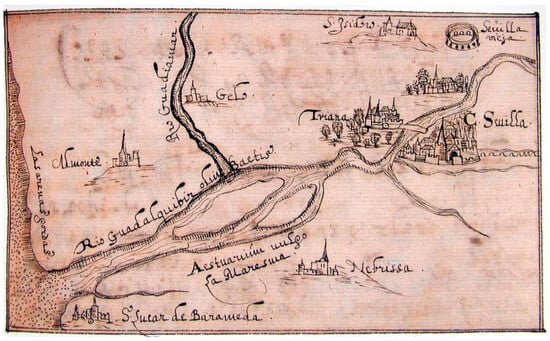 S. Isidro.
Sevilla
vieja.
Rio Guadiamar
Gelo
Triana
C. Sevilla.
Almonte
Las arenas gordas
Rio Guadalquibir olim Baetis
Aestuarium vulgo
la Maresma.
Nebrissa.
S. Lucar de Barameda